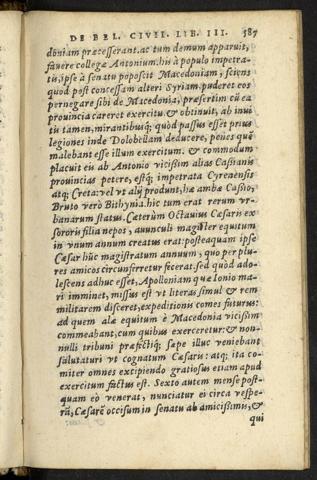 DE BEL. CIVIL. LIB. III. 587
doniam præcesserant. ac tum demum apparuit,
fauere collegæ Antonium. his à populo impetra-
tis, ipse à senatu poposcit Macedoniam, sciens
quòd post concessam alteri Syriam, puderet eos
pernegare sibi de Macedonia, præsertim cũ ea
prouincia careret exercitu. & obtinuit, ab inui
tis tamen, mirantibusq; quòd passus esset prius
legiones inde Dolobellam deducere, penes quẽ
malebant esse illum exercitum. & commodum
placuit eis ab Antonio vicißim alias Caßianis
prouincias petere, estq; impetrata Cyrenensis
atq; Creta: vel vt alij produnt, hæ ambæ Caßio,
Bruto verò Bithynia. hic tum erat rerum vr-
banarum status. Cæterùm Octauius Cæsaris ex
sororis filia nepos, auunculi magister equitum
in vnum annum creatus erat: posteaquam ipse
Cæsar hũc magistratum annuum, quo per plu-
res amicos circunferretur fecerat. sed quòd ado-
lescens adhuc esset, Apolloniam quæ Ionio ma-
ri imminet, missus est vt literas simul & rem
militarem disceret, expeditionis comes futurus:
ad quem alæ equitum è Macedonia vicißim
commeabant, cum quibus exerceretur: & non-
nulli tribuni præfectiq; sæpe illuc veniebant
salutaturi vt cognatum Cæsaris: atq; ita co-
miter omnes excipiendo gratiosus etiam apud
exercitum factus est. Sexto autem mense post-
quam eò venerat, nunciatur ei circa vespe-
rã, Cæsarẽ occisum in senatu ab amicißimis, &
qui